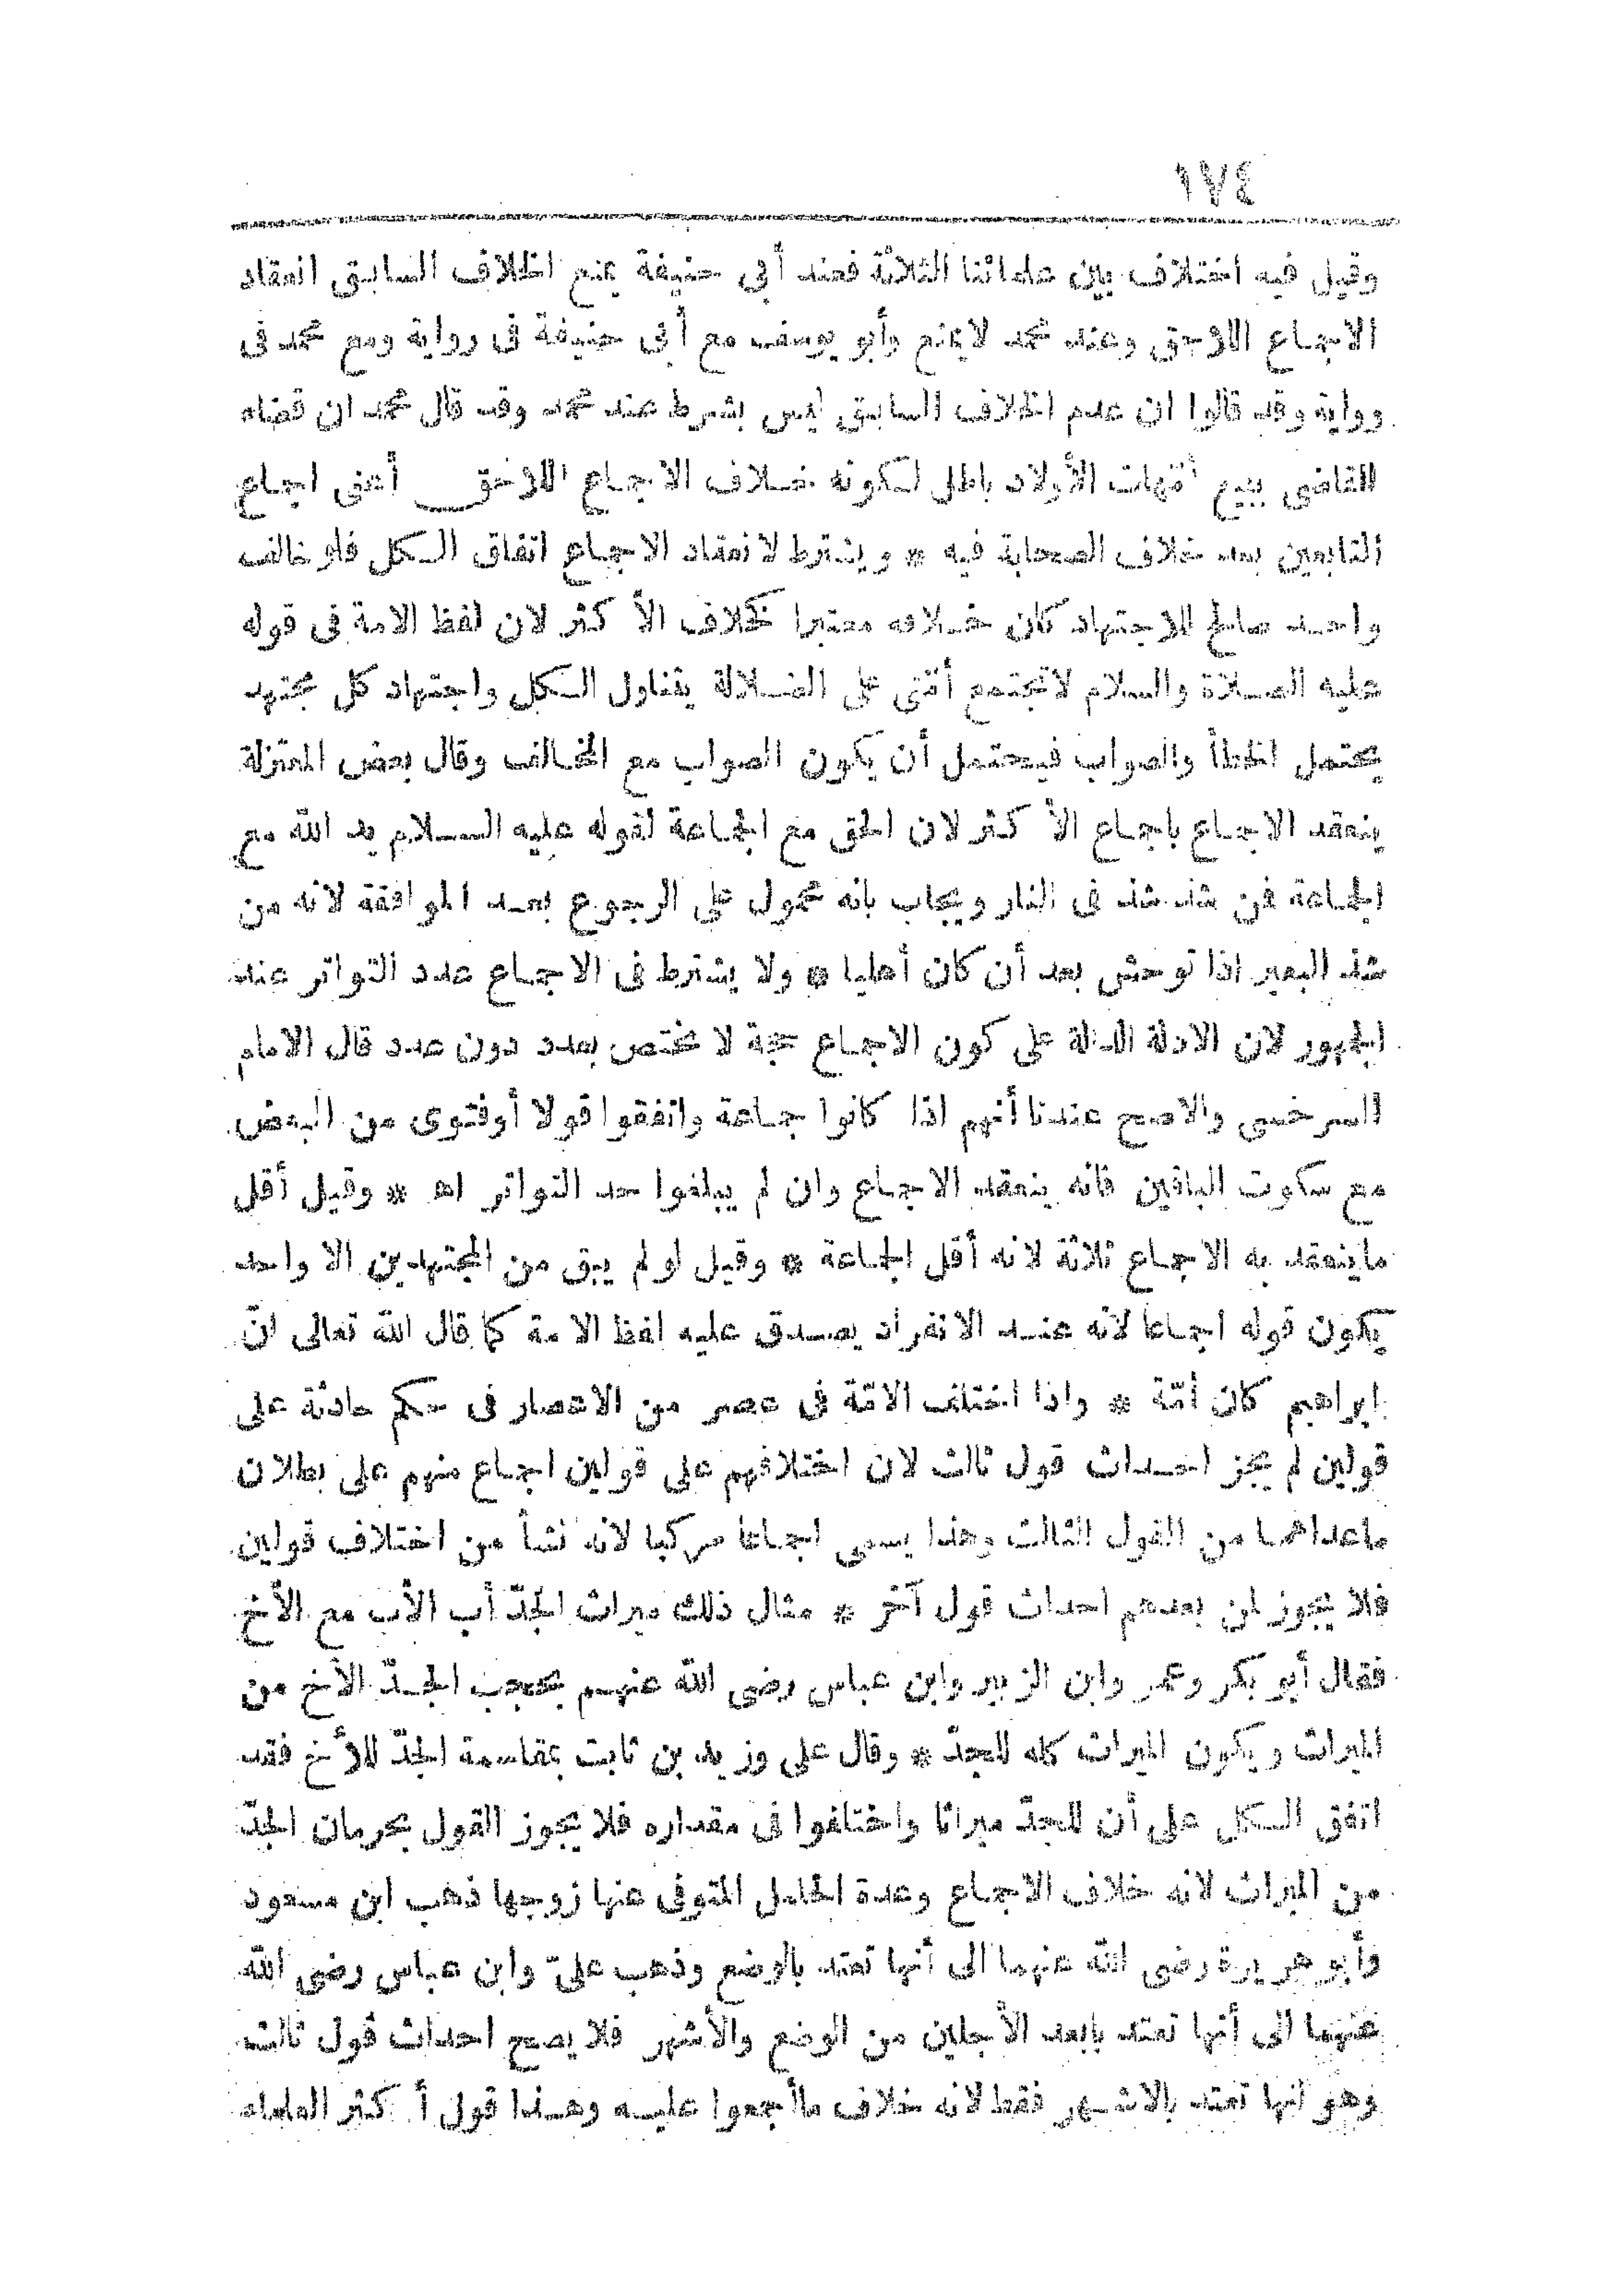 ١٧٤
وقيل فيه اختلاف بين علمائنا الثلاثة فعند أبى حنيفة يمنع الخلاف السابق انعقاد
الاجماع اللاحق وعند محمد لايمنع وأبو يوسف مع أبى حنيفة فى رواية ومع محمد فى
رواية وقد قالوا ان عدم الخلاف السابق ليس بشرط عند محمد وقد قال محمد ان قضاء
القاضى ببيع أمّهات الأولاد باطل لكونه خلاف الاجماع اللاحق أعنى اجماع
التابعين بعد خلاف الصحابة فيه * ويشترط لانعقاد الاجماع اتفاق الكل فلو خالف
واحد صالح للاجتهاد كان خلافه معتبرا كخلاف الأكثر لان لفظ الامة فى قوله
عليه الصلاة والسلام لاتجتمع أمّتى على الضلالة يتناول الكل واجتهاد كل مجتهد
يحتمل الخطأ والصواب فيحتمل أن يكون الصواب مع المخالف وقال بعض المعتزلة
ينعقد الاجماع باجماع الأكثر لان الحق مع الجماعة لقوله عليه السلام يد الله مع
الجماعة فمن شذ شذ فى النار ويجاب بانه محمول على الرجوع بعد الموافقة لانه من
شذ البعير اذا توحش بعد أن كان أهليا * ولا يشترط فى الاجماع عدد التواتر عند
الجمهور لان الادلة الدالة على كون الاجماع حجة لا تختص بعدد دون عدد قال الامام
السرخسى والاصح عندنا أنهم اذا كانوا جماعة واتفقوا قولا أوفتوى من البعض
مع سكوت الباقين فانه ينعقد الاجماع وان لم يبلغوا حد التواتر اه * وقيل أقل
ماينعقد به الاجماع ثلاثة لانه أقل الجماعة * وقيل لو لم يبق من المجتهدين الا واحد
يكون قوله اجماعا لانه عند الانفراد يصدق عليه لفظ الامة كما قال الله تعالى انّ
ابراهيم كان أمّة * واذا اختلف الامّة فى عصر من الاعصار فى حكم حادثة على
قولين لم يجز احداث قول ثالث لان اختلافهم على قولين اجماع منهم على بطلان
ماعداهما من القول الثالث وهذا يسمى اجماعا مركبا لانه نشأ من اختلاف قولين
فلا يجوز لمن بعدهم احداث قول آخر * مثال ذلك ميراث الجدّ أب الأب مع الأخ
فقال أبو بكر وعمر وابن الزبير وابن عباس رضى الله عنهم يحجب الجدّ الأخ من
الميراث ويكون الميراث كله للجدّ * وقال على وزيد بن ثابت بمقاسمة الجدّ للأخ فقد
اتفق الكل على أن للجدّ ميراثا واختلفوا فى مقداره فلا يجوز القول بحرمان الجدّ
من الميراث لانه خلاف الاجماع وعدة الحامل المتوفى عنها زوجها ذهب ابن مسعود
وأبو هريرة رضى الله عنهما الى أنها تعتد بالوضع وذهب علىّ وابن عباس رضى الله
عنهما الى أنها تعتد بابعد الأجلين من الوضع والأشهر فلا يصح احداث قول ثالث
وهو انها تعتد بالاشهر فقط لانه خلاف ماأجمعوا عليه وهذا قول أكثر العلماء